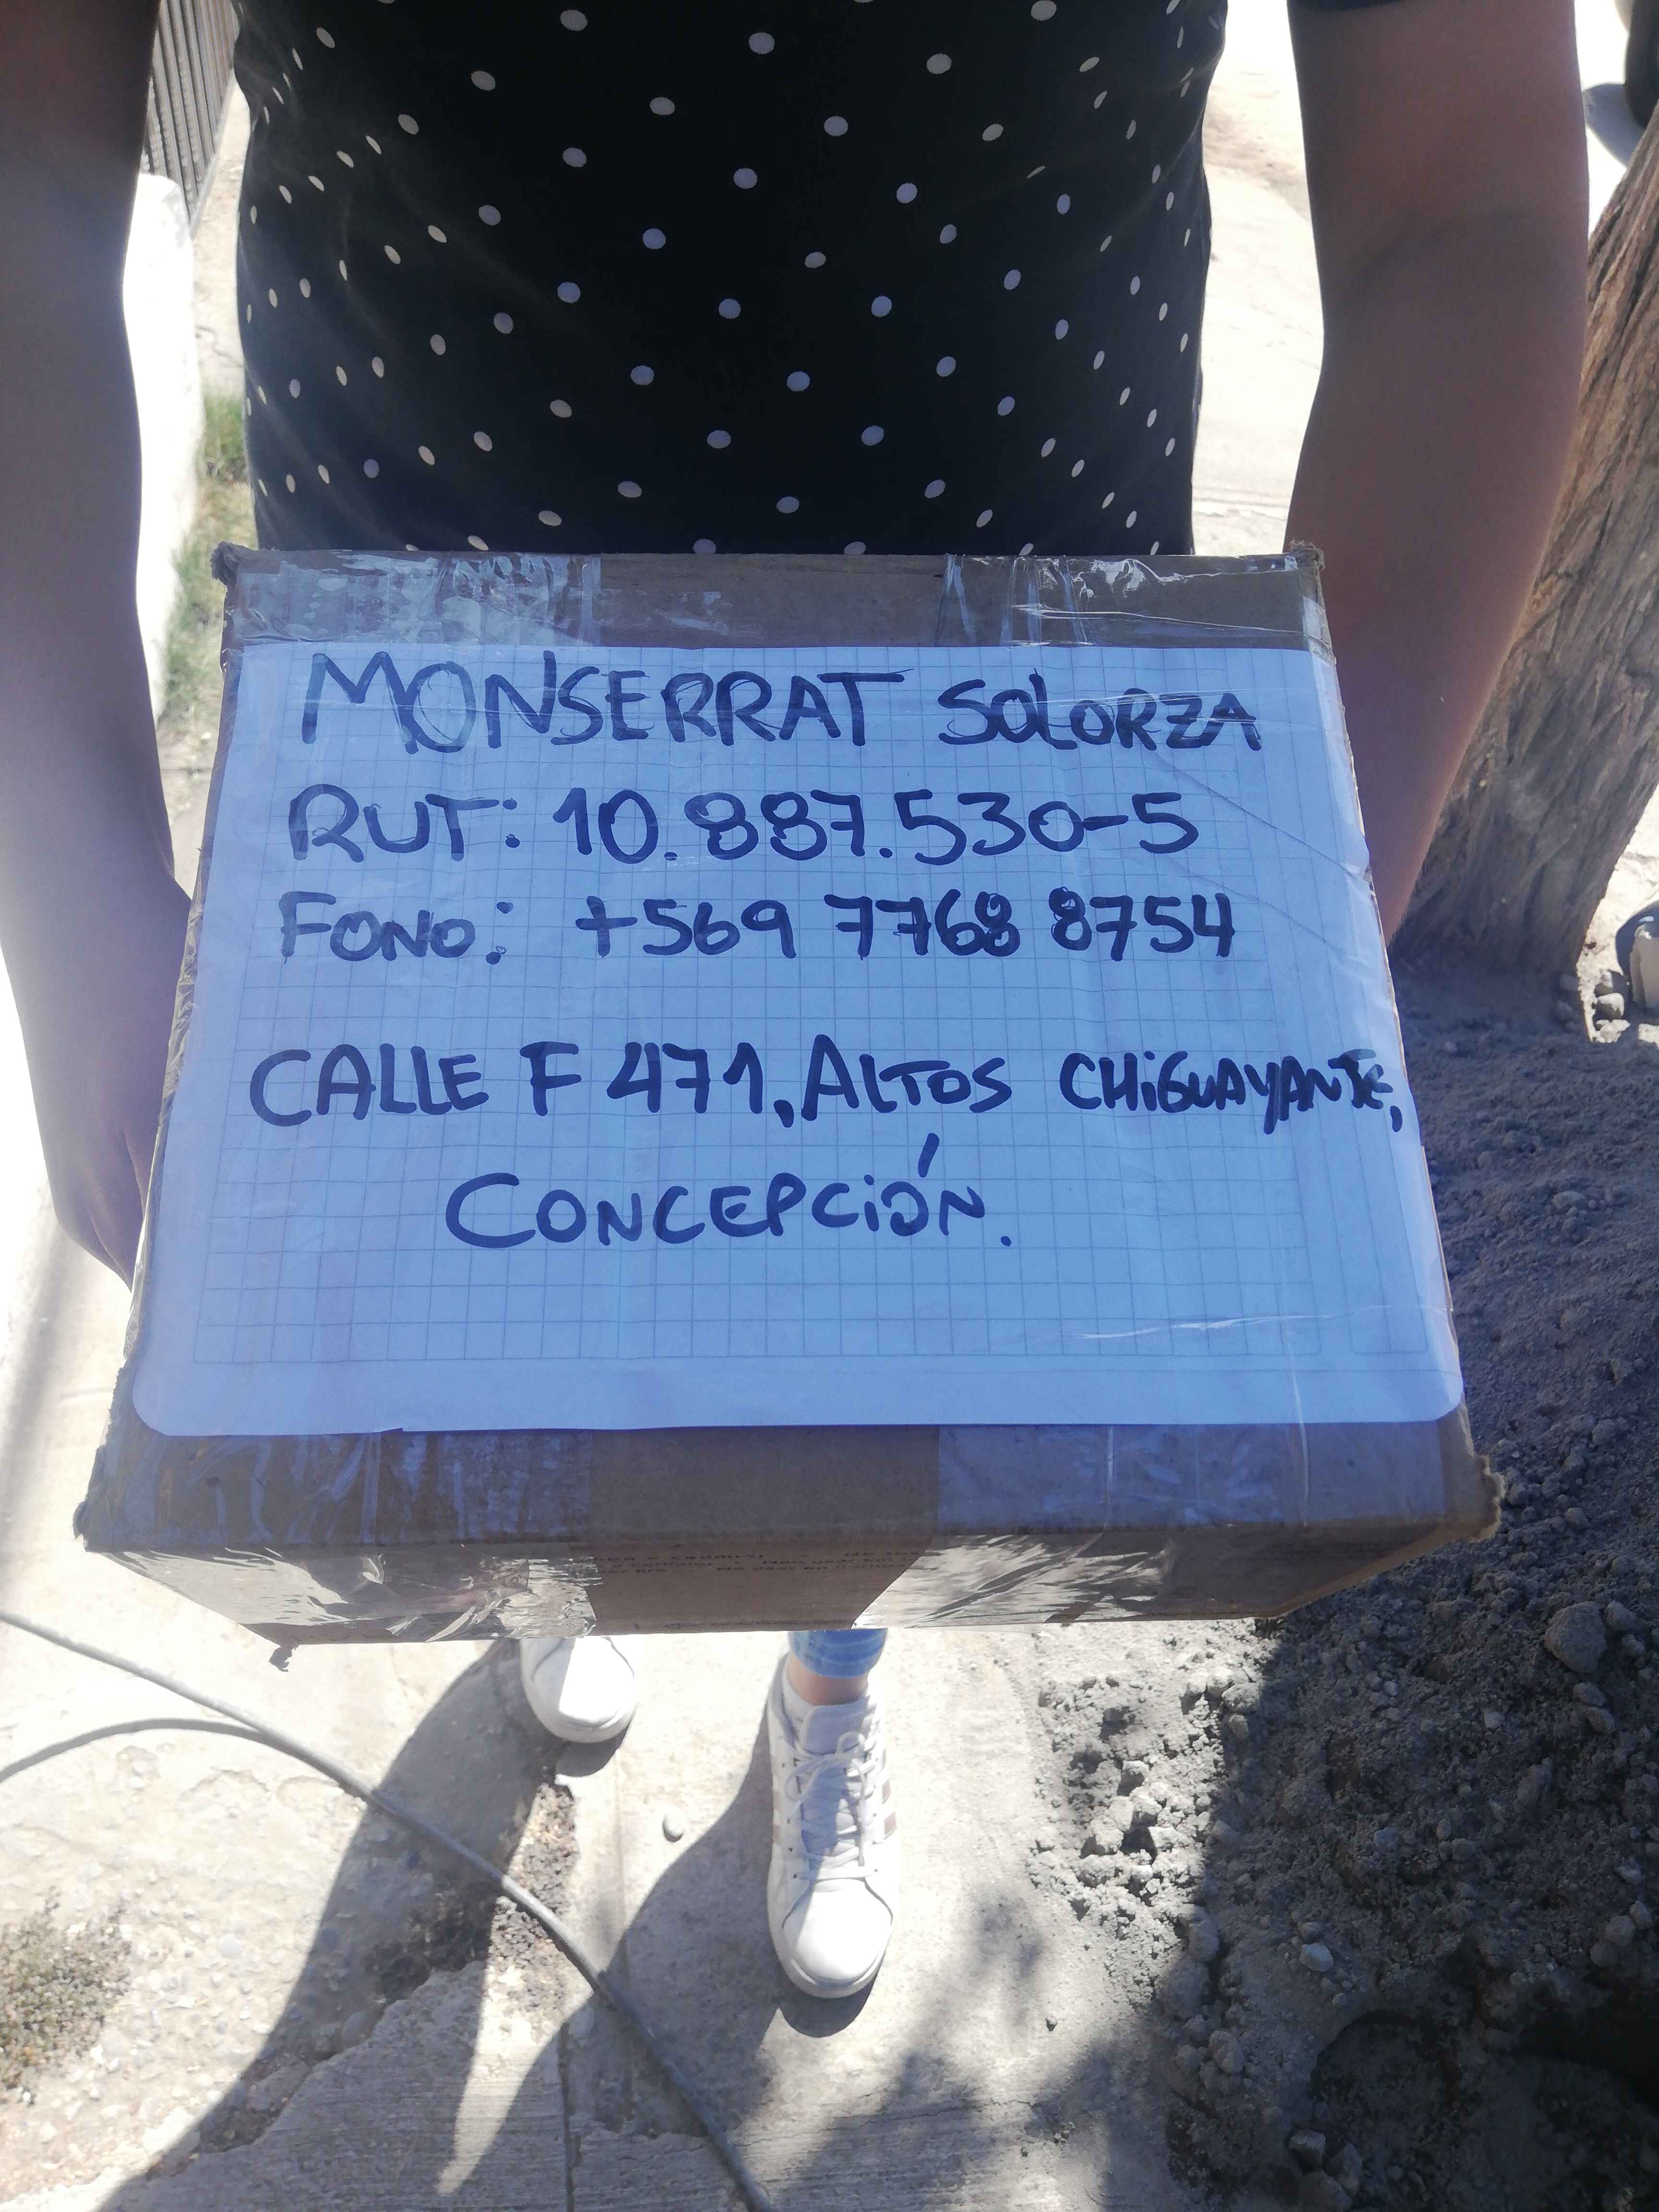 MONSERRAT SOLORZA
RUT: 10.887.530-5
FONO: +569 7768 8754
CALLE F 471, ALTOS CHIGUAYANTE,
CONCEPCIÓN.